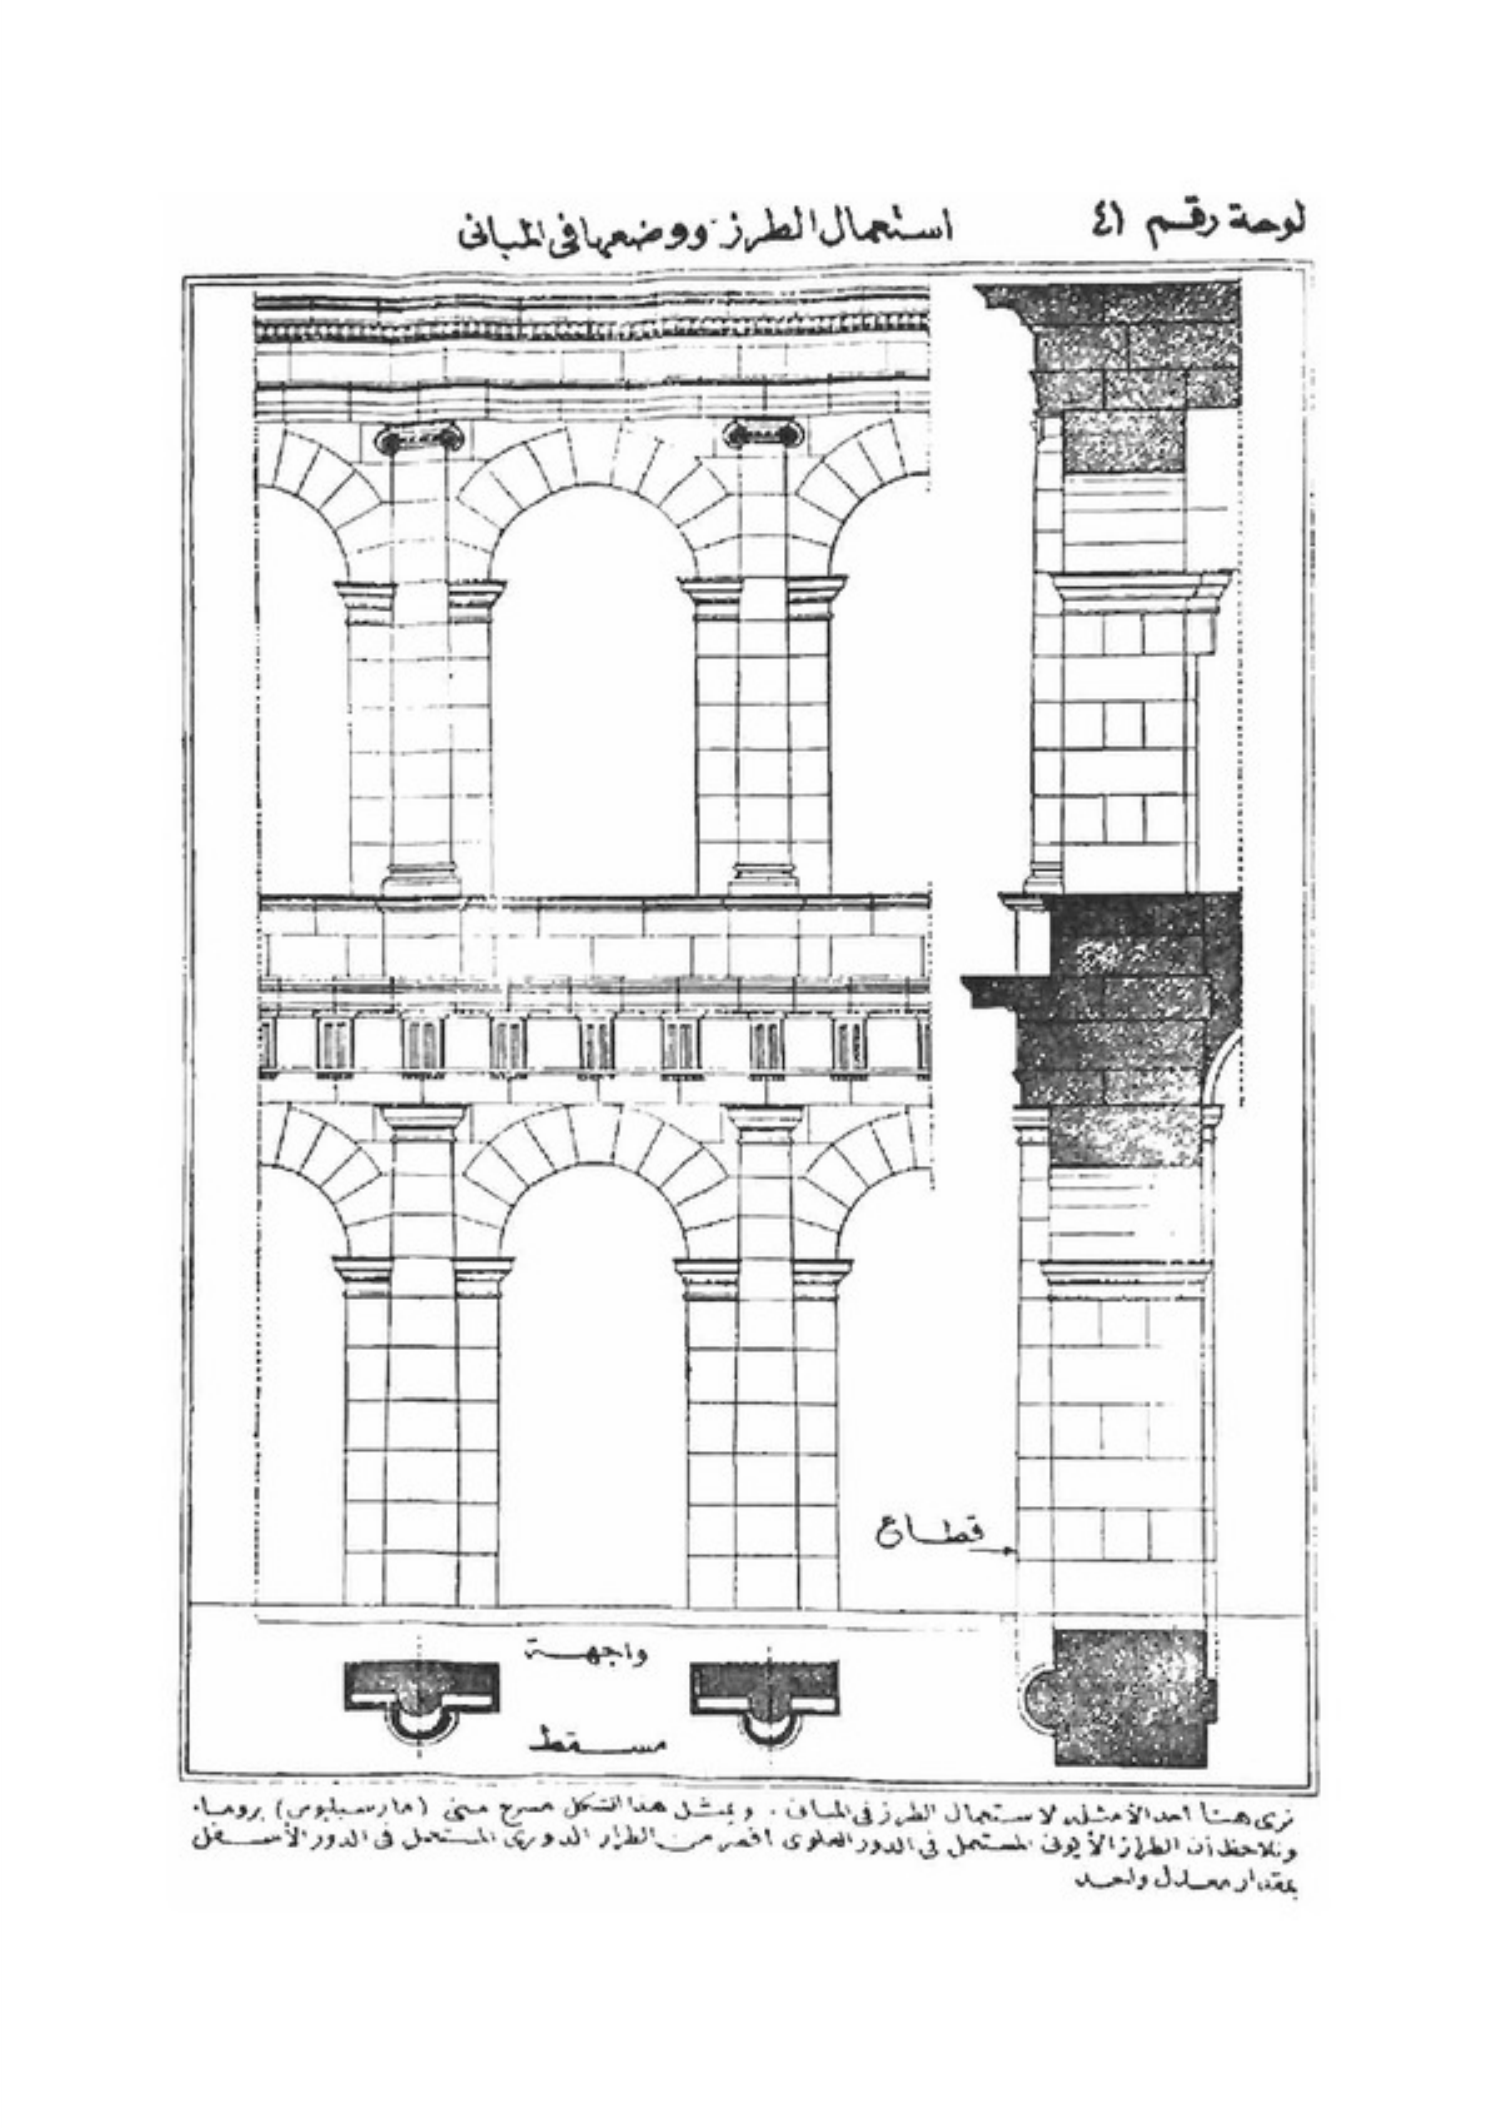 لوحة رقم ٤١
استعمال الطرز ووضعها فى المبانى
قطاع
واجهة
مسقط
نرى هنا أحد الأمثلة لاستعمال الطرز فى المبانى . ويمثل هذا الشكل مسرح مبنى (مارسيليوس) بروما.
ونلاحظ أن الطراز الأيونى المستعمل فى الدور العلوى أقصر من الطراز الدورى المستعمل فى الدور الأسفل
بمقدار معدل واحد